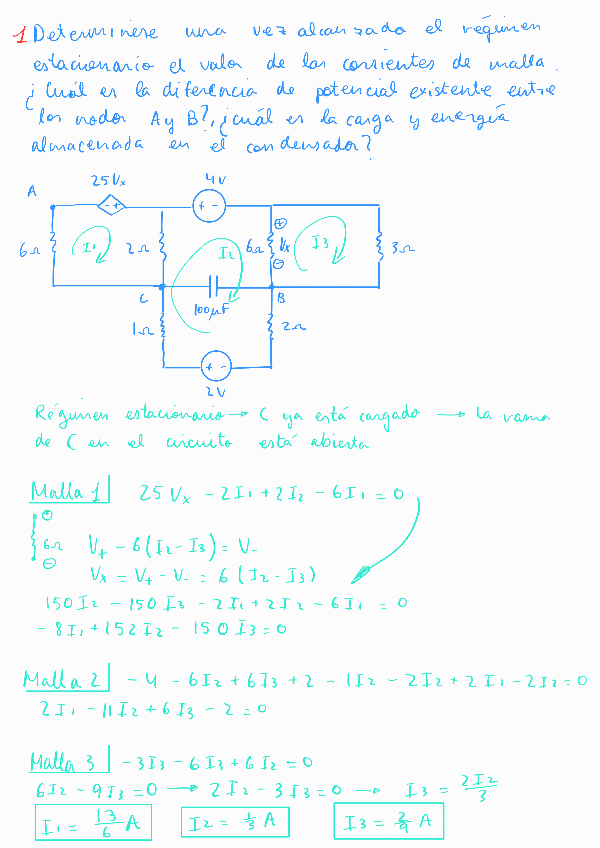 1 Determínese una vez alcanzado el régimen
estacionario el valor de las corrientes de malla.
¿Cuál es la diferencia de potencial existente entre
los nodos A y B?, ¿cuál es la carga y energía
almacenada en el condensador?
A
25Vx
4V
- +
+ -
6Ω
I1
2Ω
I2
6Ω
⊕
Vx
⊖
I3
3Ω
C
100μF
B
1Ω
2Ω
+ -
2V
Régimen estacionario → C ya está cargado → La rama
de C en el circuito está abierta
Malla 1 25Vx - 2I1 + 2I2 - 6I1 = 0
⊕
6Ω
⊖
V+ - 6(I2 - I3) = V-
Vx = V+ - V- = 6(I2 - I3)
150I2 - 150I3 - 2I1 + 2I2 - 6I1 = 0
-8I1 + 152I2 - 150I3 = 0
Malla 2 -4 - 6I2 + 6I3 + 2 - 1I2 - 2I2 + 2I1 - 2I2 = 0
2I1 - 11I2 + 6I3 - 2 = 0
Malla 3 -3I3 - 6I3 + 6I2 = 0
6I2 - 9I3 = 0 → 2I2 - 3I3 = 0 → I3 = 2I2/3
I1 = 13/6 A I2 = 1/3 A I3 = 2/9 A